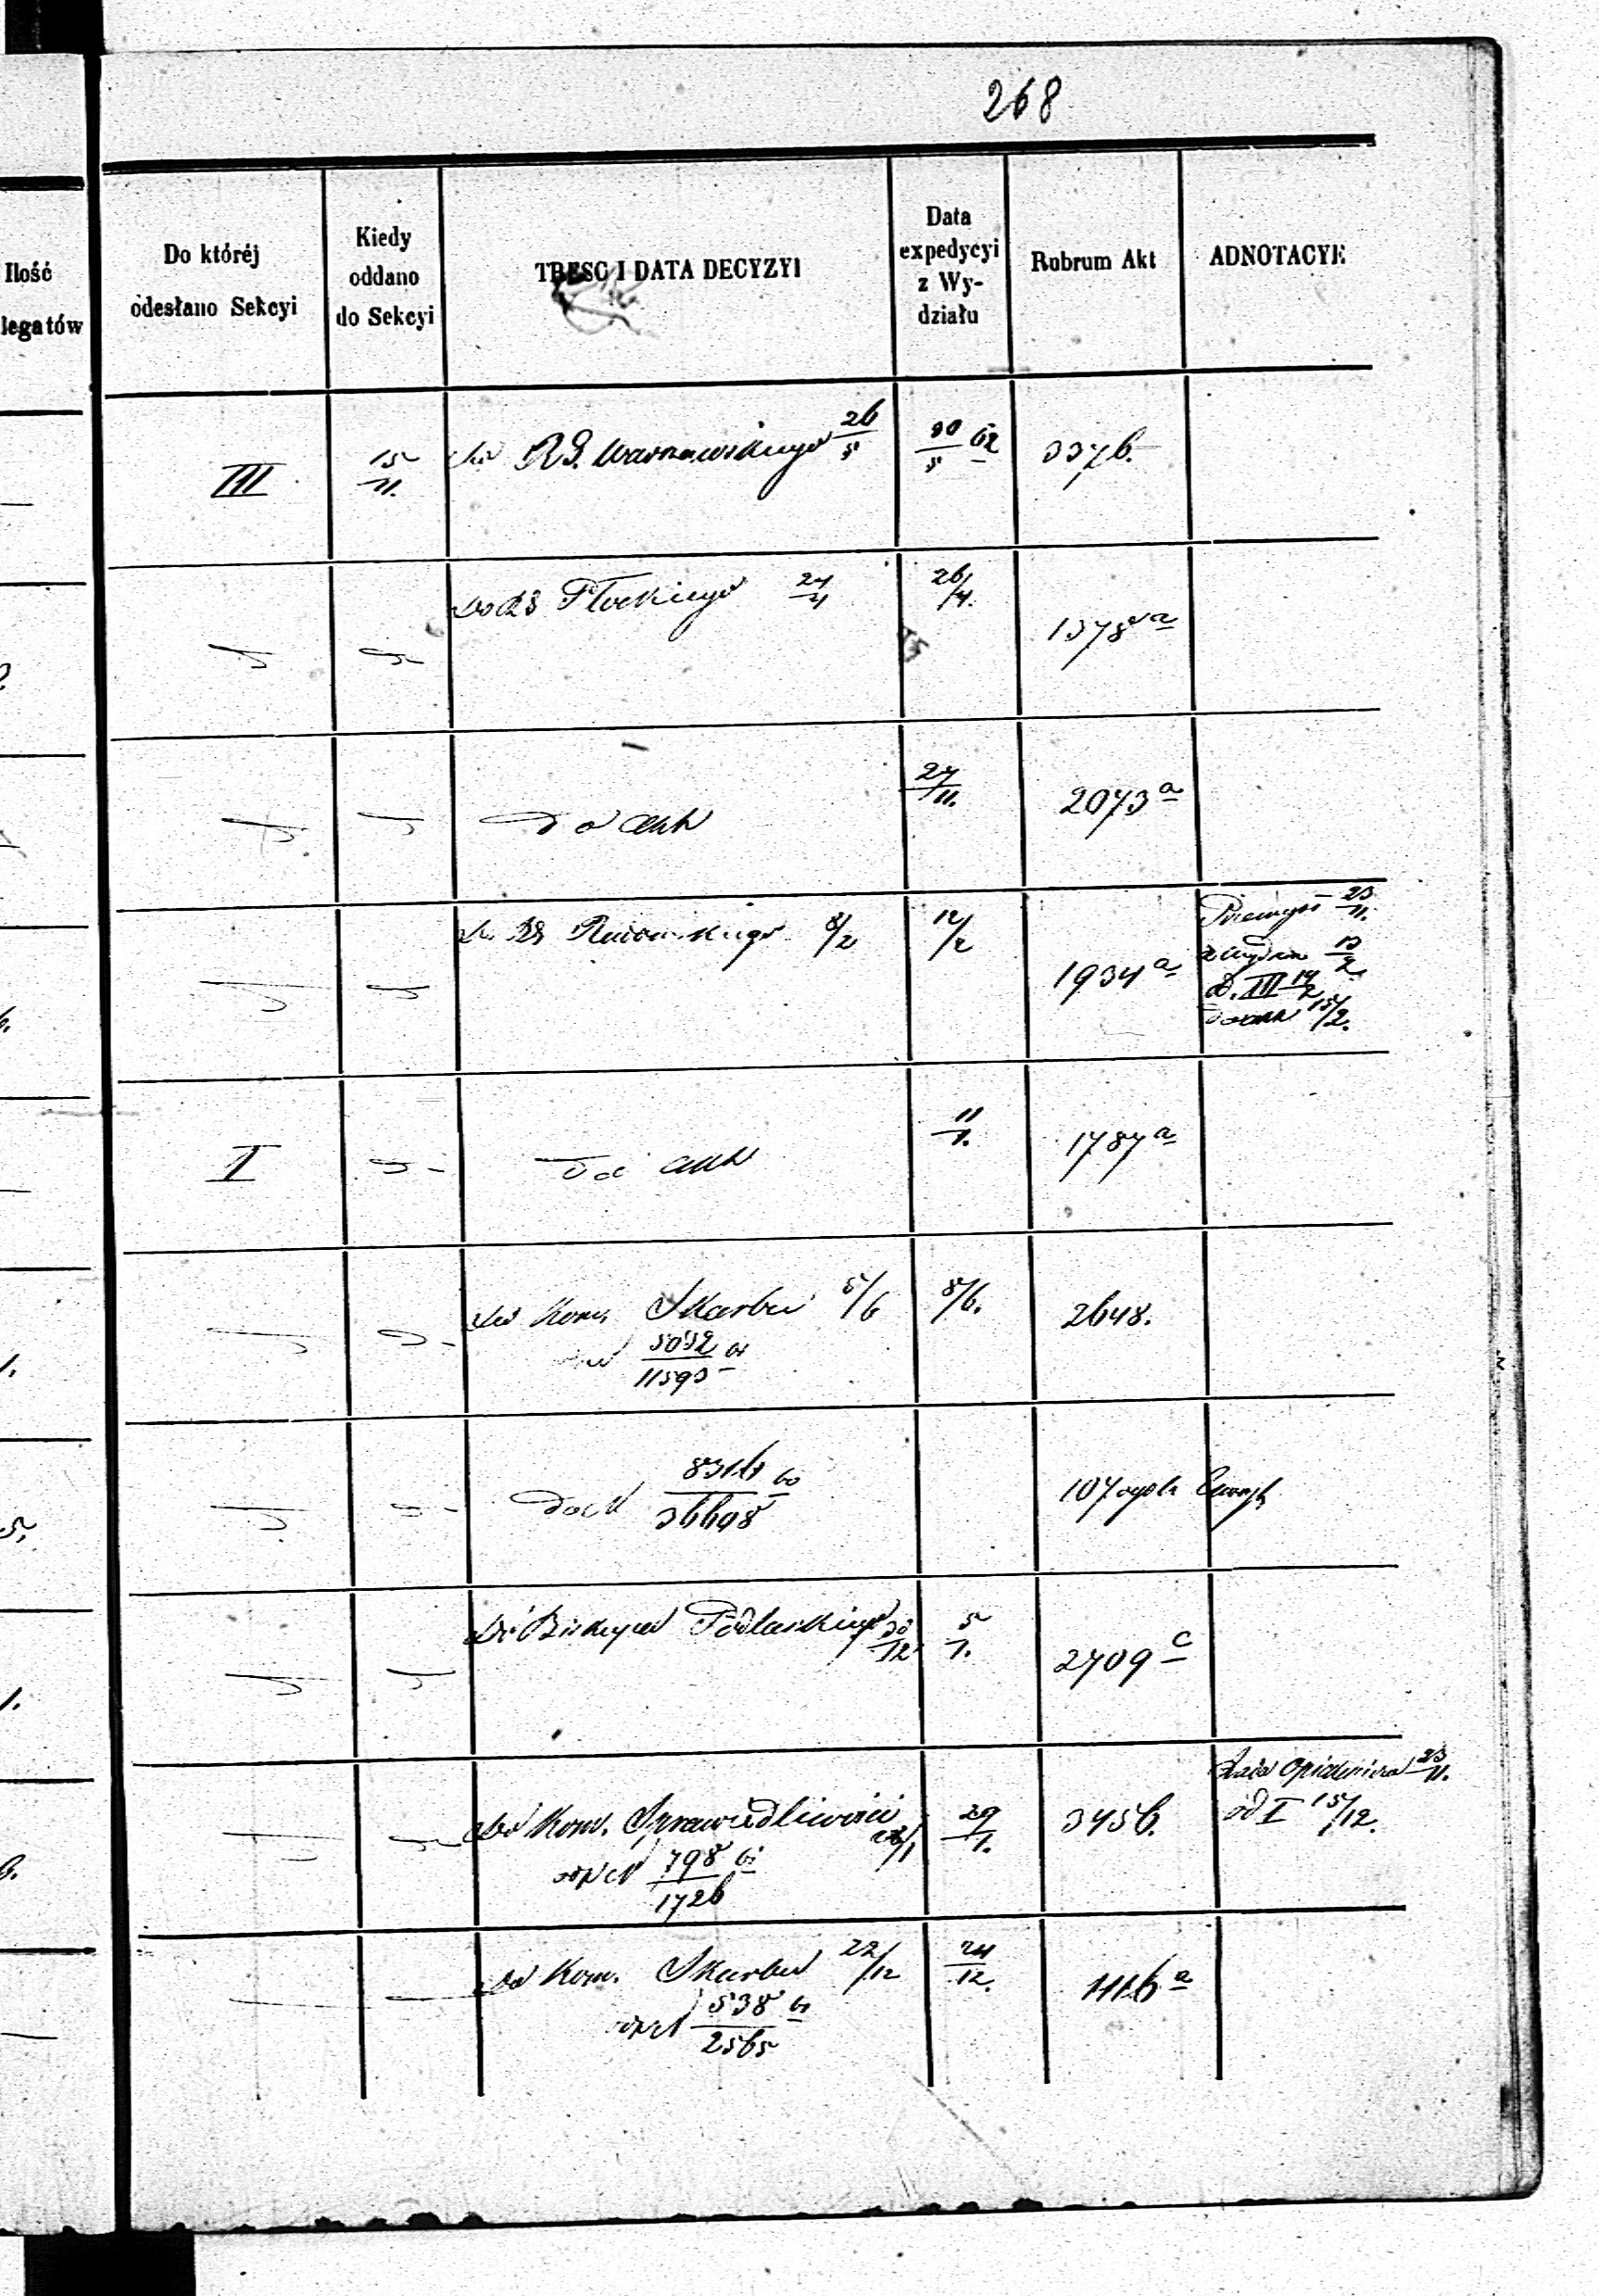 268
Ilość
legatów
Do któréj
odesłano Sekcyi
Kiedy
oddano
do Sekcyi
TREŚĆ I DATA DECYZYI
Data
expedycyi
z Wy-
działu
Rubrum Akt
ADNOTACYE
III 15/11. do RG. Warszawskiego 26/5 30/5 62 3376.
Do RG Płockiego 24/4 26/4. 1378 a
do akt 27/11. 2073 a
do RG Radomskiego 8/2 12/2 1934 a
23/11.
13/2
d. III 14/2
do akt 15/2.
I do akt 11/1. 1787 a
do Kom. Skarbu 5/6 8/6. 2648.
5032/11593
do N 8316/36698 107
Do Biskupa Podlaskiego 30/12 5/1. 2709 c
Do Kom. Sprawiedliwości 28/1 29/1. 3456.
798/1726
23/11.
od I 15/12.
Do Kom. Skarbu 22/12 24/12. 1116 a
538/2565